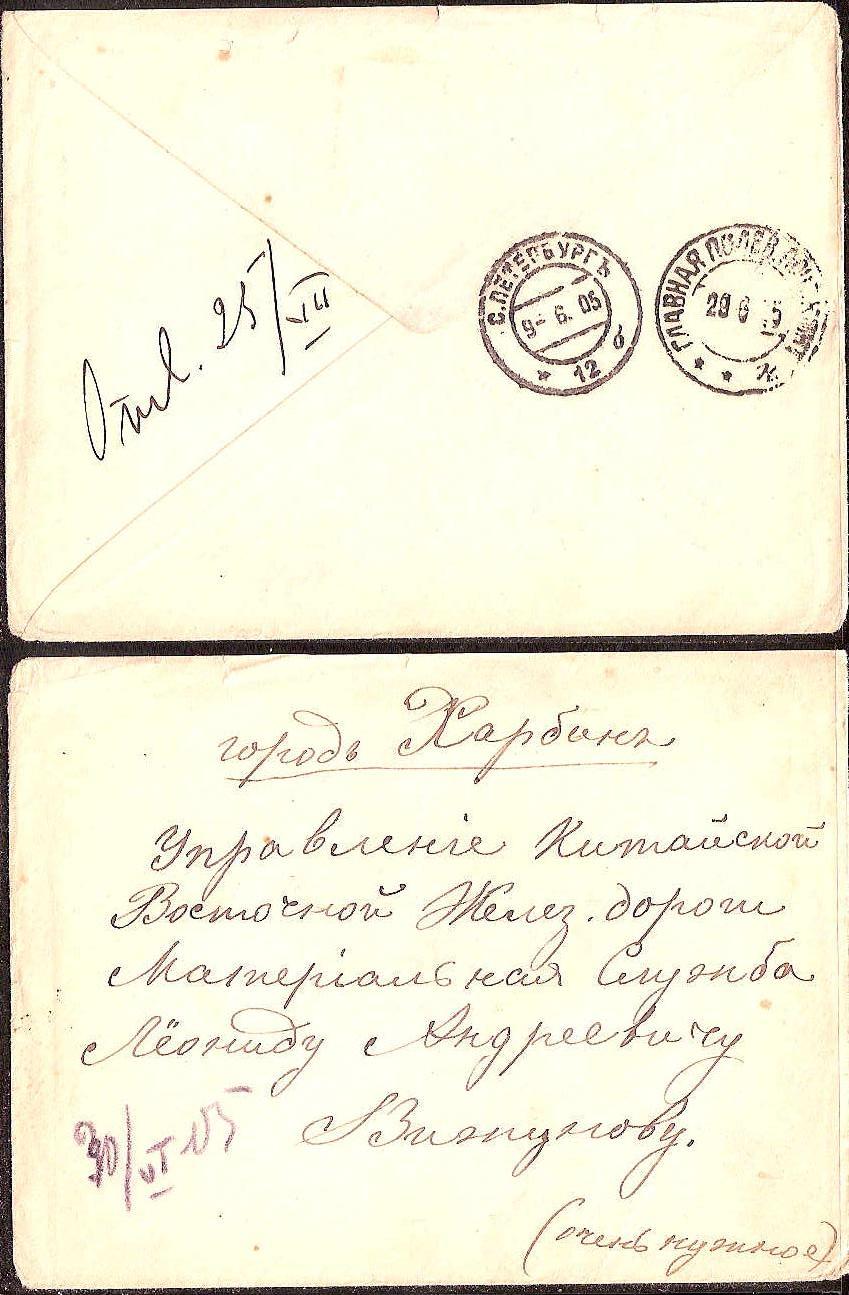 Отв. 25/VII
С.ПЕТЕРБУРГЪ
9- 6. 05
* 12 б
ГЛАВНАЯ ПОЛЕВ.
29 6
городъ Харбинъ
Управленіе Китайской
Восточной Желез. дороги
Матеріальная Служба
Леониду Андреевичу
30/VI 05
(очень нужное)